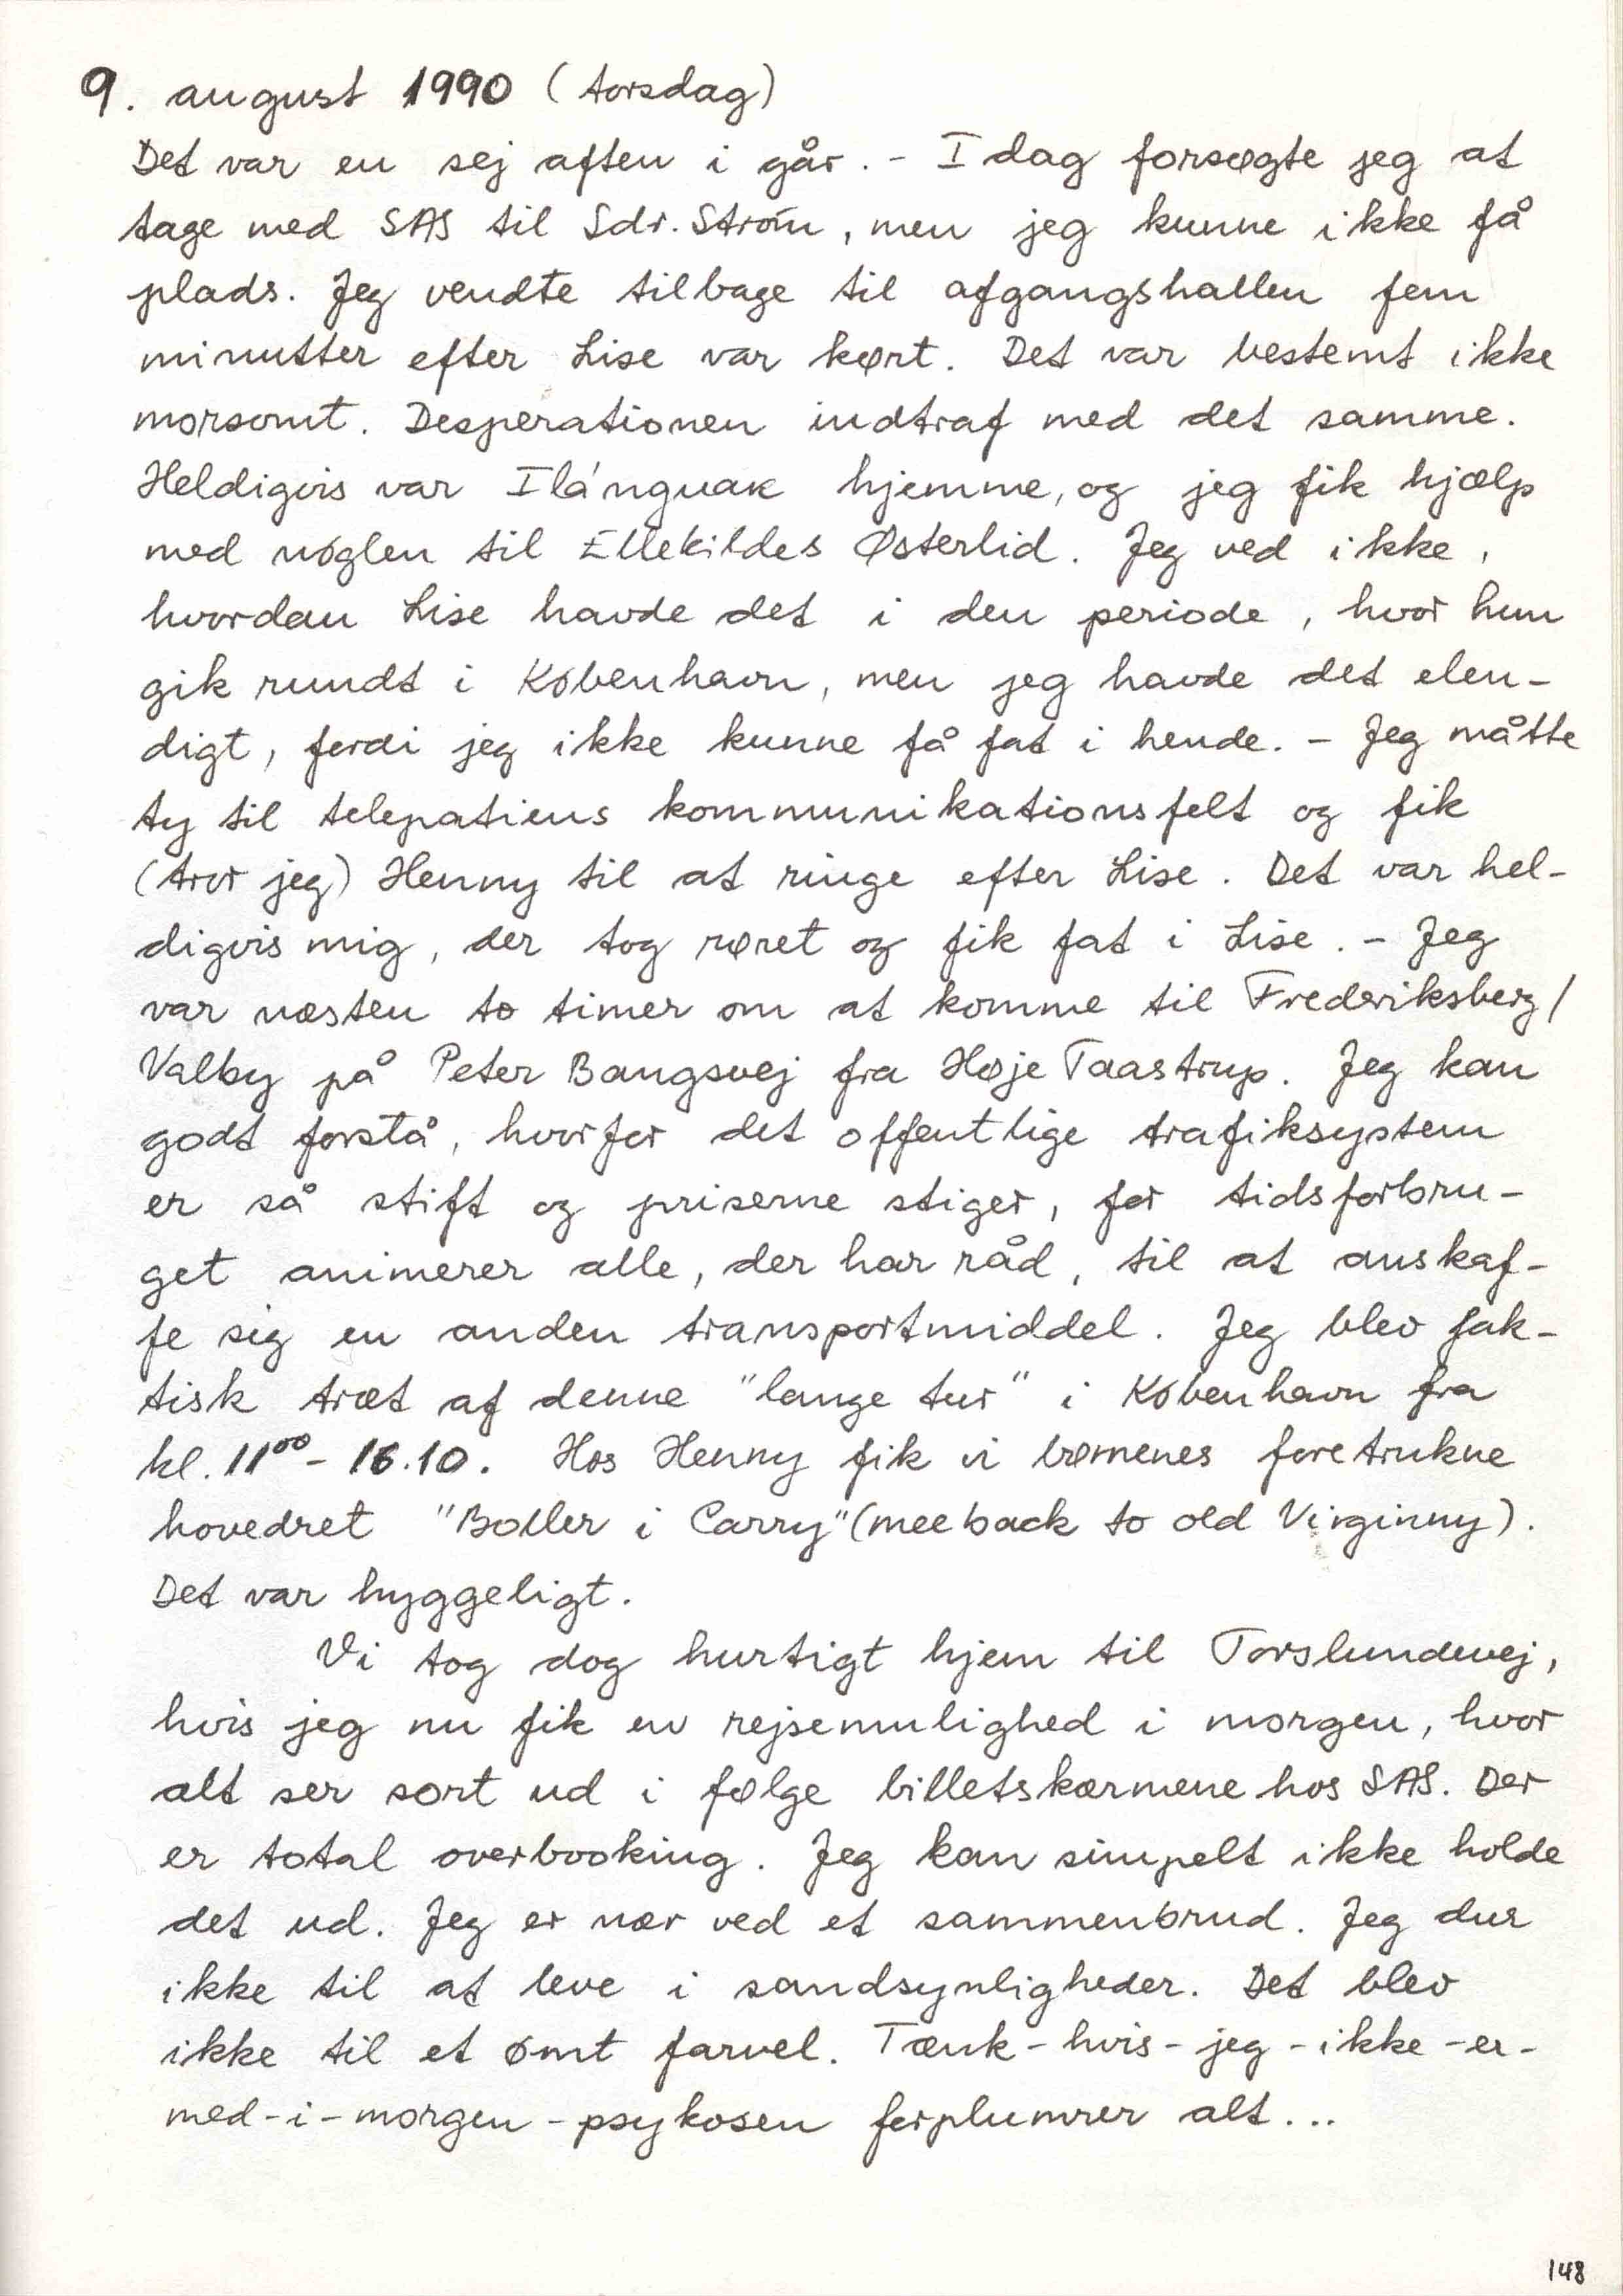 9. august 1990 (torsdag)
Det var en sej aften i går. - I dag forsøgte jeg at
tage med SAS til Sdr. Strøm, men jeg kunne ikke få
plads. Jeg vendte tilbage til afgangshallen fem
minutter efter Lise var kørt. Det var bestemt ikke
morsomt. Desperationen indtraf med det samme.
Heldigvis var Ilánguak hjemme, og jeg fik hjælp
med nøglen til Ellekildes Østerlid. Jeg ved ikke,
hvordan Lise havde det i den periode, hvor hun
gik rundt i København, men jeg havde det elen-
digt, fordi jeg ikke kunne få fat i hende. - Jeg måtte
ty til telepatiens kommunikationsfelt og fik
(tror jeg) Henny til at ringe efter Lise. Det var hel-
digvis mig, der tog røret og fik fat i Lise. - Jeg
var næsten to timer om at komme til Frederiksberg/
Valby på Peter Bangsvej fra Høje Taastrup. Jeg kan
godt forstå, hvorfor det offentlige trafiksystem
er så stift og priserne stiger, for tidsforbru-
get animerer alle, der har råd, til at anskaf-
fe sig en anden transportmiddel. Jeg blev fak-
tisk træt af denne "lange tur" i København fra
kl. 11⁰⁰ - 16.10. Hos Henny fik vi børnenes foretrukne
hovedret "Boller i Carry" (mee back to old Virginny).
Det var hyggeligt.
Vi tog dog hurtigt hjem til Torslundevej,
hvis jeg nu fik en rejsemulighed i morgen, hvor
alt ser sort ud i følge billetskærmene hos SAS. Der
er total overbooking. Jeg kan simpelt ikke holde
det ud. Jeg er nær ved et sammenbrud. Jeg dur
ikke til at leve i sandsynligheder. Det blev
ikke til et ømt farvel. Tænk-hvis-jeg-ikke-er-
med-i-morgen-psykosen forplumrer alt...
148